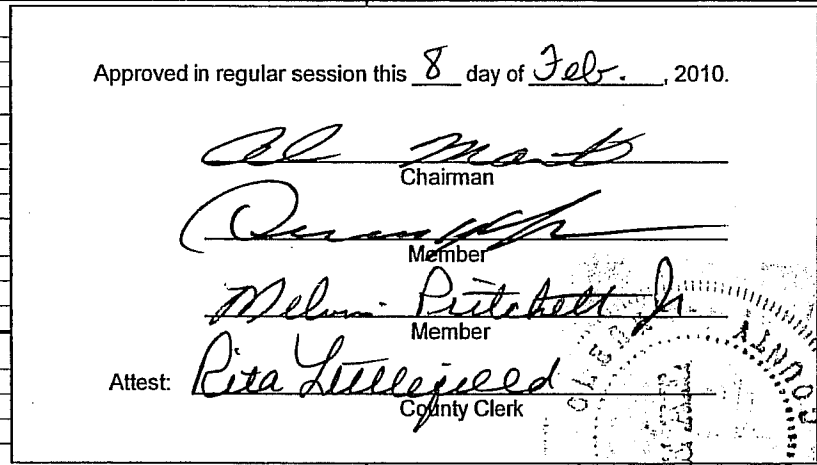 Approved in regular session this 8 day of Feb., 2010.
Al
Chairman
Member
Melvin Pritchett Jr
Member
Attest: Rita Littlefield
County Clerk
CLERK
COUNTY